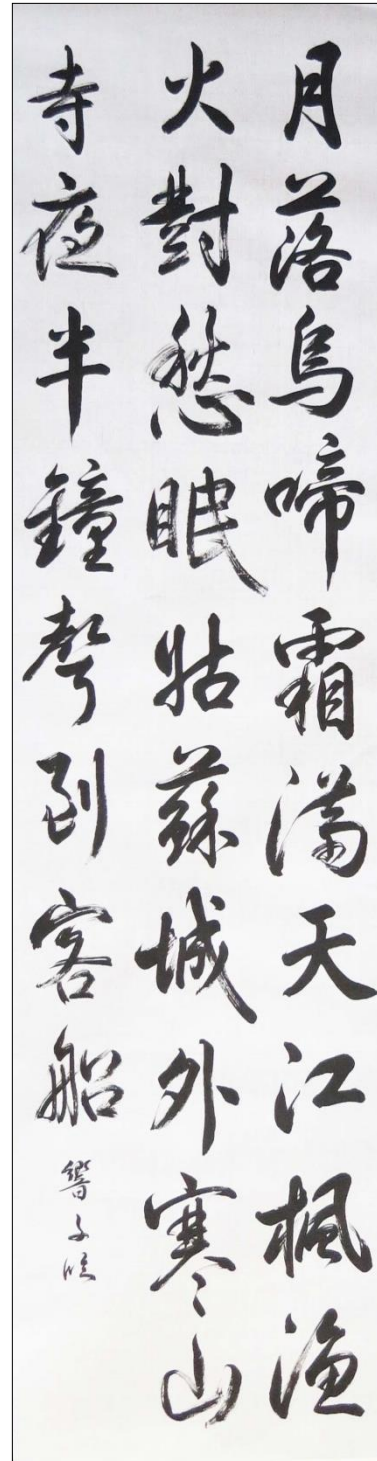 月落烏啼霜滿天江楓漁
火對愁眠姑蘇城外寒山
寺夜半鐘聲到客船
響子臨